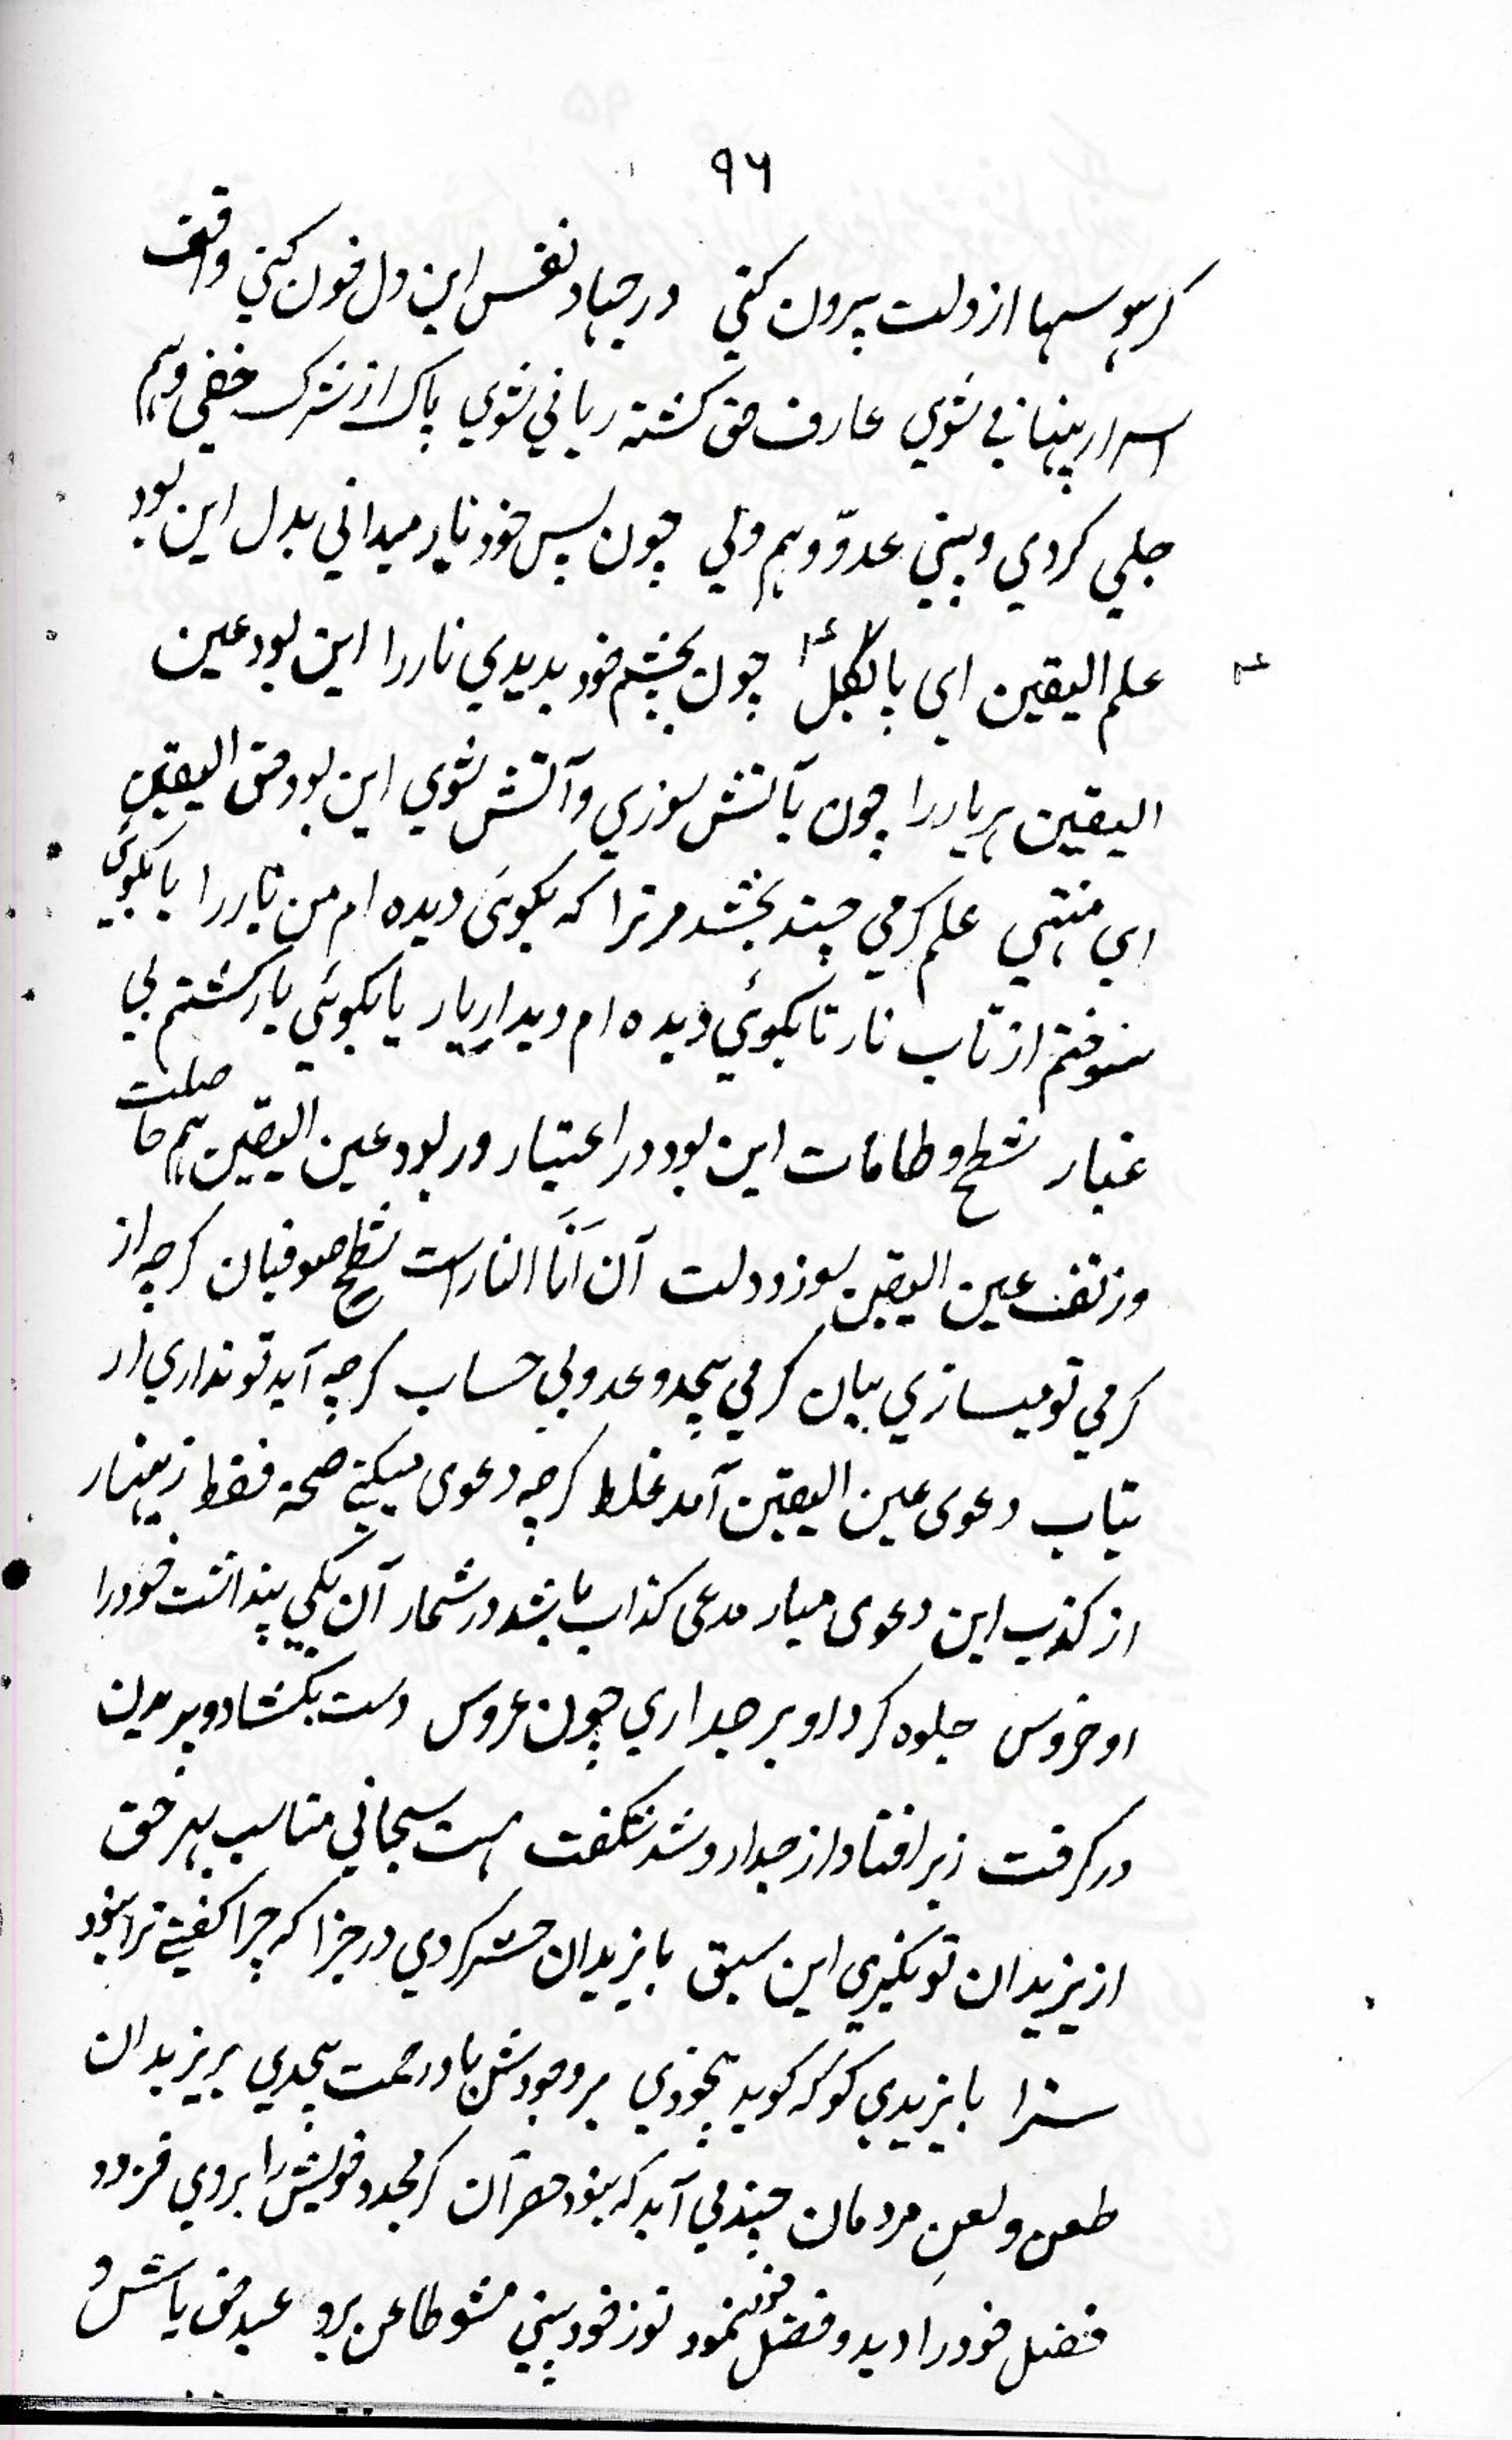 ۹۶
کر هوسها از دلت بیرون کنی در جهاد نفس این دل خون کنی واقف
اسرار پنهانی شوی عارف حق کشته ربانی شوی پاک از شرک خفی و هم
جلی کردی و بینی عدوّ و هم ولی چون پس خود نار میدانی بدل این بود
علم الیقین ای چون بچشم خود بدیدی نار را این بود عین
الیقین هر یار را چون بآتش سوزی و آتش شوی این بود حق الیقین
ای منتهی علم کرمی چند بخشد مر ترا که بکوئی دیده ام من نار را یا بکوئی
سوختم از تاب نار تا بکوئی دیده ام دیدار یار یا بکوئی یار کشتم بی
غبار شطح و طامات این بود در اعتبار ور بود عین الیقین هم حاصلت
وز تف عین الیقین سوزد دلت آن اَنَا النار است شطح صوفیان کرچه از
کرمی تو میسازی بیان کرمی بیحد و عد و بی حساب کرچه آید تو نداری ار
بتاب دعوی عین الیقین آمد غلط کرچه دعوی میکنی صحة فقط زینهار
از کذب این دعوی میار مدعی کذاب باشد در شمار آن یکی پنداشت خود را
او خروس جلوه کرد او بر جداری چون عروس دست بکشاد و پریدن
در کرفت زیر افتاد از جدار و شد شکفت هست سبحانی مناسب بهر حق
از یزیدان تو نکیری این سبق با یزیدان حشر کردی در جزا که چرا کفتی ترا نبود
سزا بایزیدی کو که کوید بیخودی بر وجودش باد رحمت بیحدی بر یزیدان
طعن و لعنِ مردمان چند می آید که نبود حصر آن کر مجدد خویش را بروی فزود
فضل خود را دید و فضل خود نمود تو ز خود بینی مشو طاعن برو عبد حق باش و